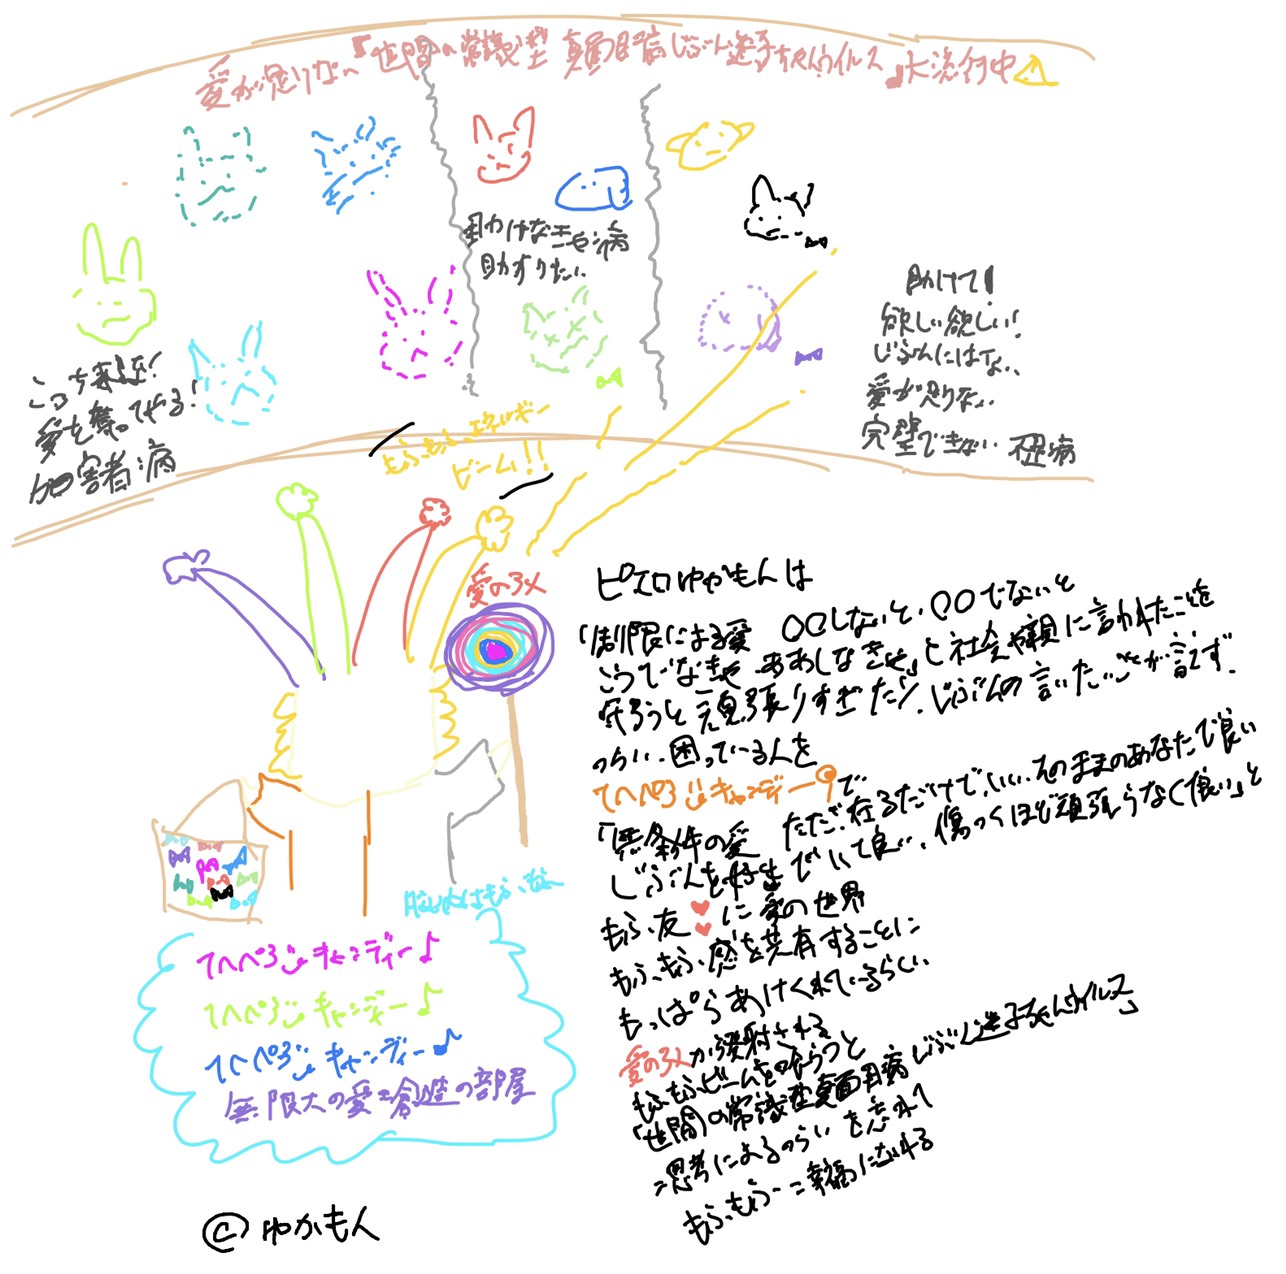 愛が足りない『世間の常識型 真面目病じぶん迷子ちゃんウイルス』大流行中
助けなきゃ病
助すけたい
助けて!
欲しい欲しい!
じぶんにはない、
愛が足りない
完璧できない 病
こっち来い!
愛を奪ってやる!
加害者病
もふもふエネルギー
ビーム!!
愛の3メ
ピエロゆかもんは
「制限による愛 〇〇しないと、〇〇でないと
こうでなきゃ ああしなきゃ」と社会や親に言われたことを
守ろうと頑張りすぎたり、じぶんの言いたいことが言えず
つらい、困っている人を
てへぺろキャンディーで
「無条件の愛 ただ在るだけで、いい、そのままのあなたで良い
じぶんを好きでいて良い、傷つくほど頑張らなくて良い」と
もふ友に愛の世界
もふもふ感を共有することに
もっぱらあけくれているらしい
愛の3メから発射される
もふもふビームを喰らうと
「世間の常識型真面目病じぶん迷子ちゃんウイルス」
=思考によるつらいを忘れて
もふもふーに幸福になれる
脳内はもふもふ
てへぺろキャンディー♪
てへぺろキャンディー♪
てへぺろキャンディー♪
無限大の愛と創造の部屋
©ゆかもん